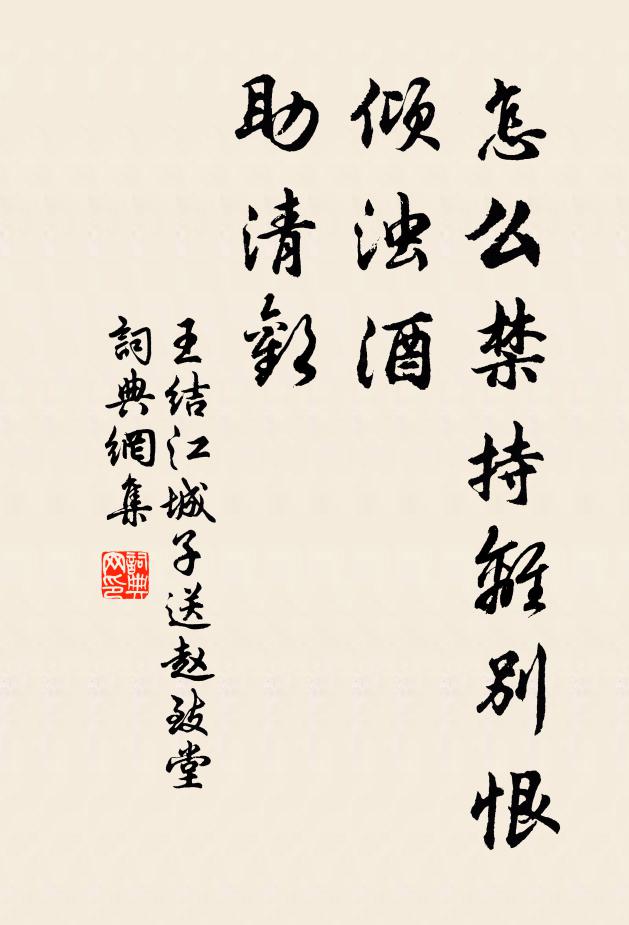 怎么禁持離别恨
倾浊酒
助清歡
王结江城子送赵致堂
詞典網集
詞典网印